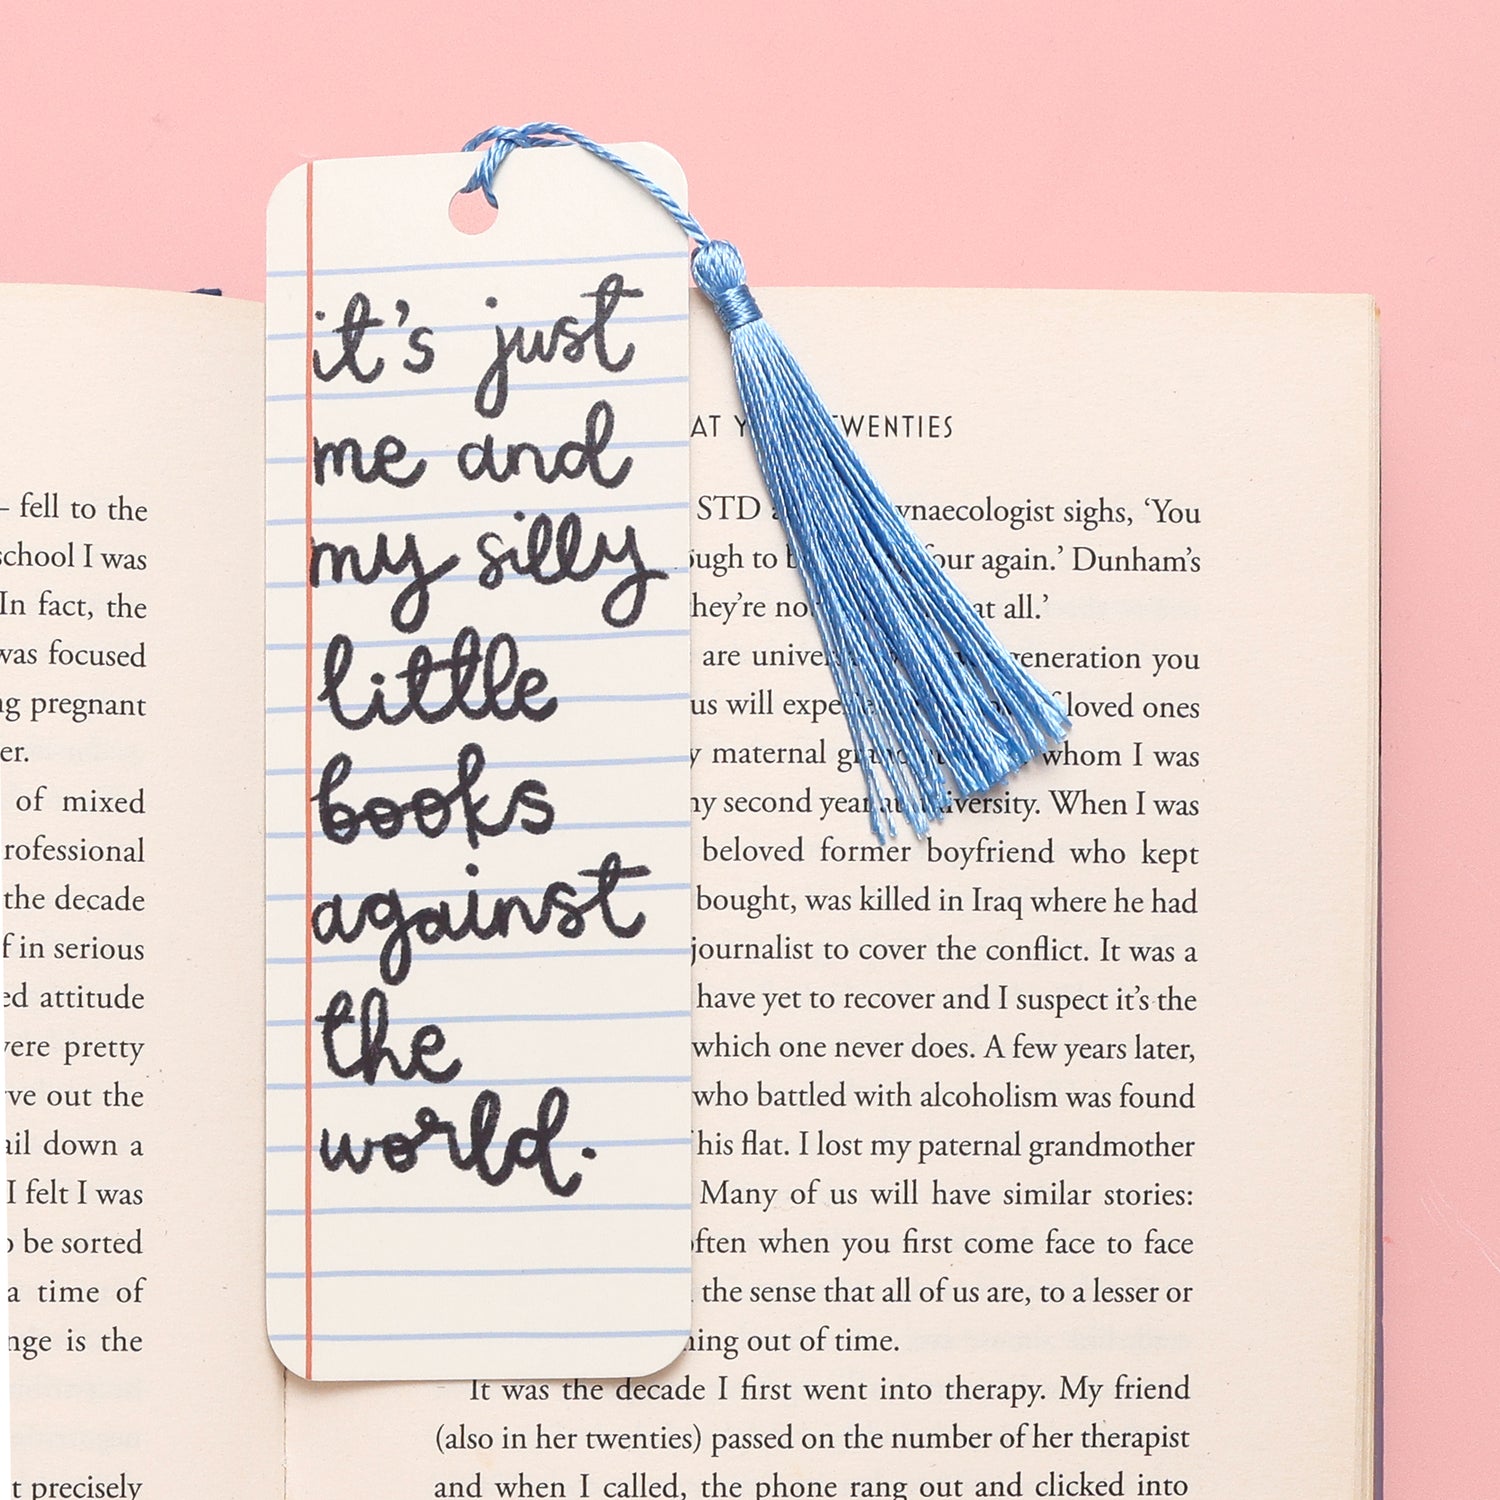 it's just
me and
my silly
little
books
against
the
world.
TWENTIES
– fell to the
school I was
In fact, the
was focused
pregnant
of mixed
the decade
in serious
attitude
pretty
out the
down a
I felt I was
be sorted
a time of
is the
precisely
STD sighs, ‘You
to again.’ Dunham’s
at all.’
are generation you
us will loved ones
maternal whom I was
second year university. When I was
beloved former boyfriend who kept
bought, was killed in Iraq where he had
journalist to cover the conflict. It was a
have yet to recover and I suspect it’s the
which one never does. A few years later,
who battled with alcoholism was found
his flat. I lost my paternal grandmother
Many of us will have similar stories:
often when you first come face to face
the sense that all of us are, to a lesser or
out of time.
It was the decade I first went into therapy. My friend
(also in her twenties) passed on the number of her therapist
and when I called, the phone rang out and clicked into